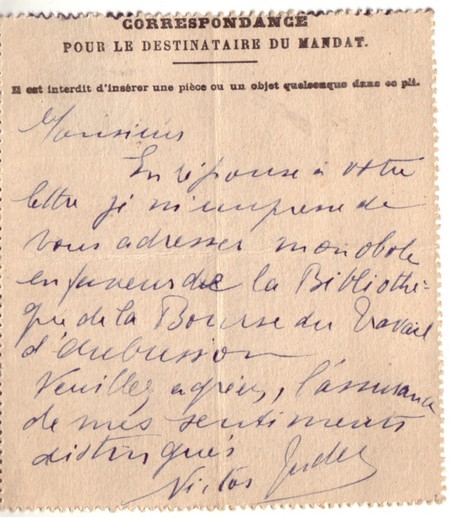 CORRESPONDANCE
POUR LE DESTINATAIRE DU MANDAT.
Il est interdit d'insérer une pièce ou un objet quelconque dans ce pli.
Monsieur
En réponse à votre
lettre je m'empresse de
vous adresser mon obole
en faveur de la Bibliothè-
que de la Bourse du Travail
d'Aubusson
Veuillez agréer, l'assurance
de mes sentiments
distingués
Victor